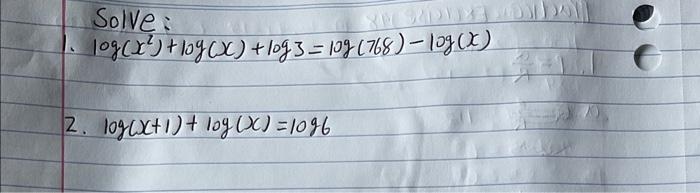 Solve:
1. log(x²)+log(x)+log3=log(768)-log(x)
2. log(x+1)+log(x)=log6